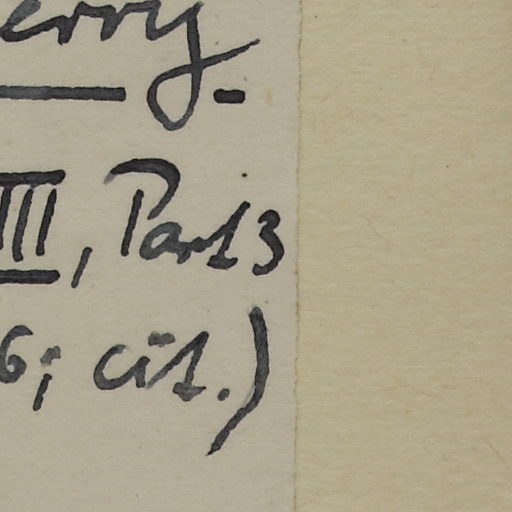 erry
III, Part 3
6; cit.)